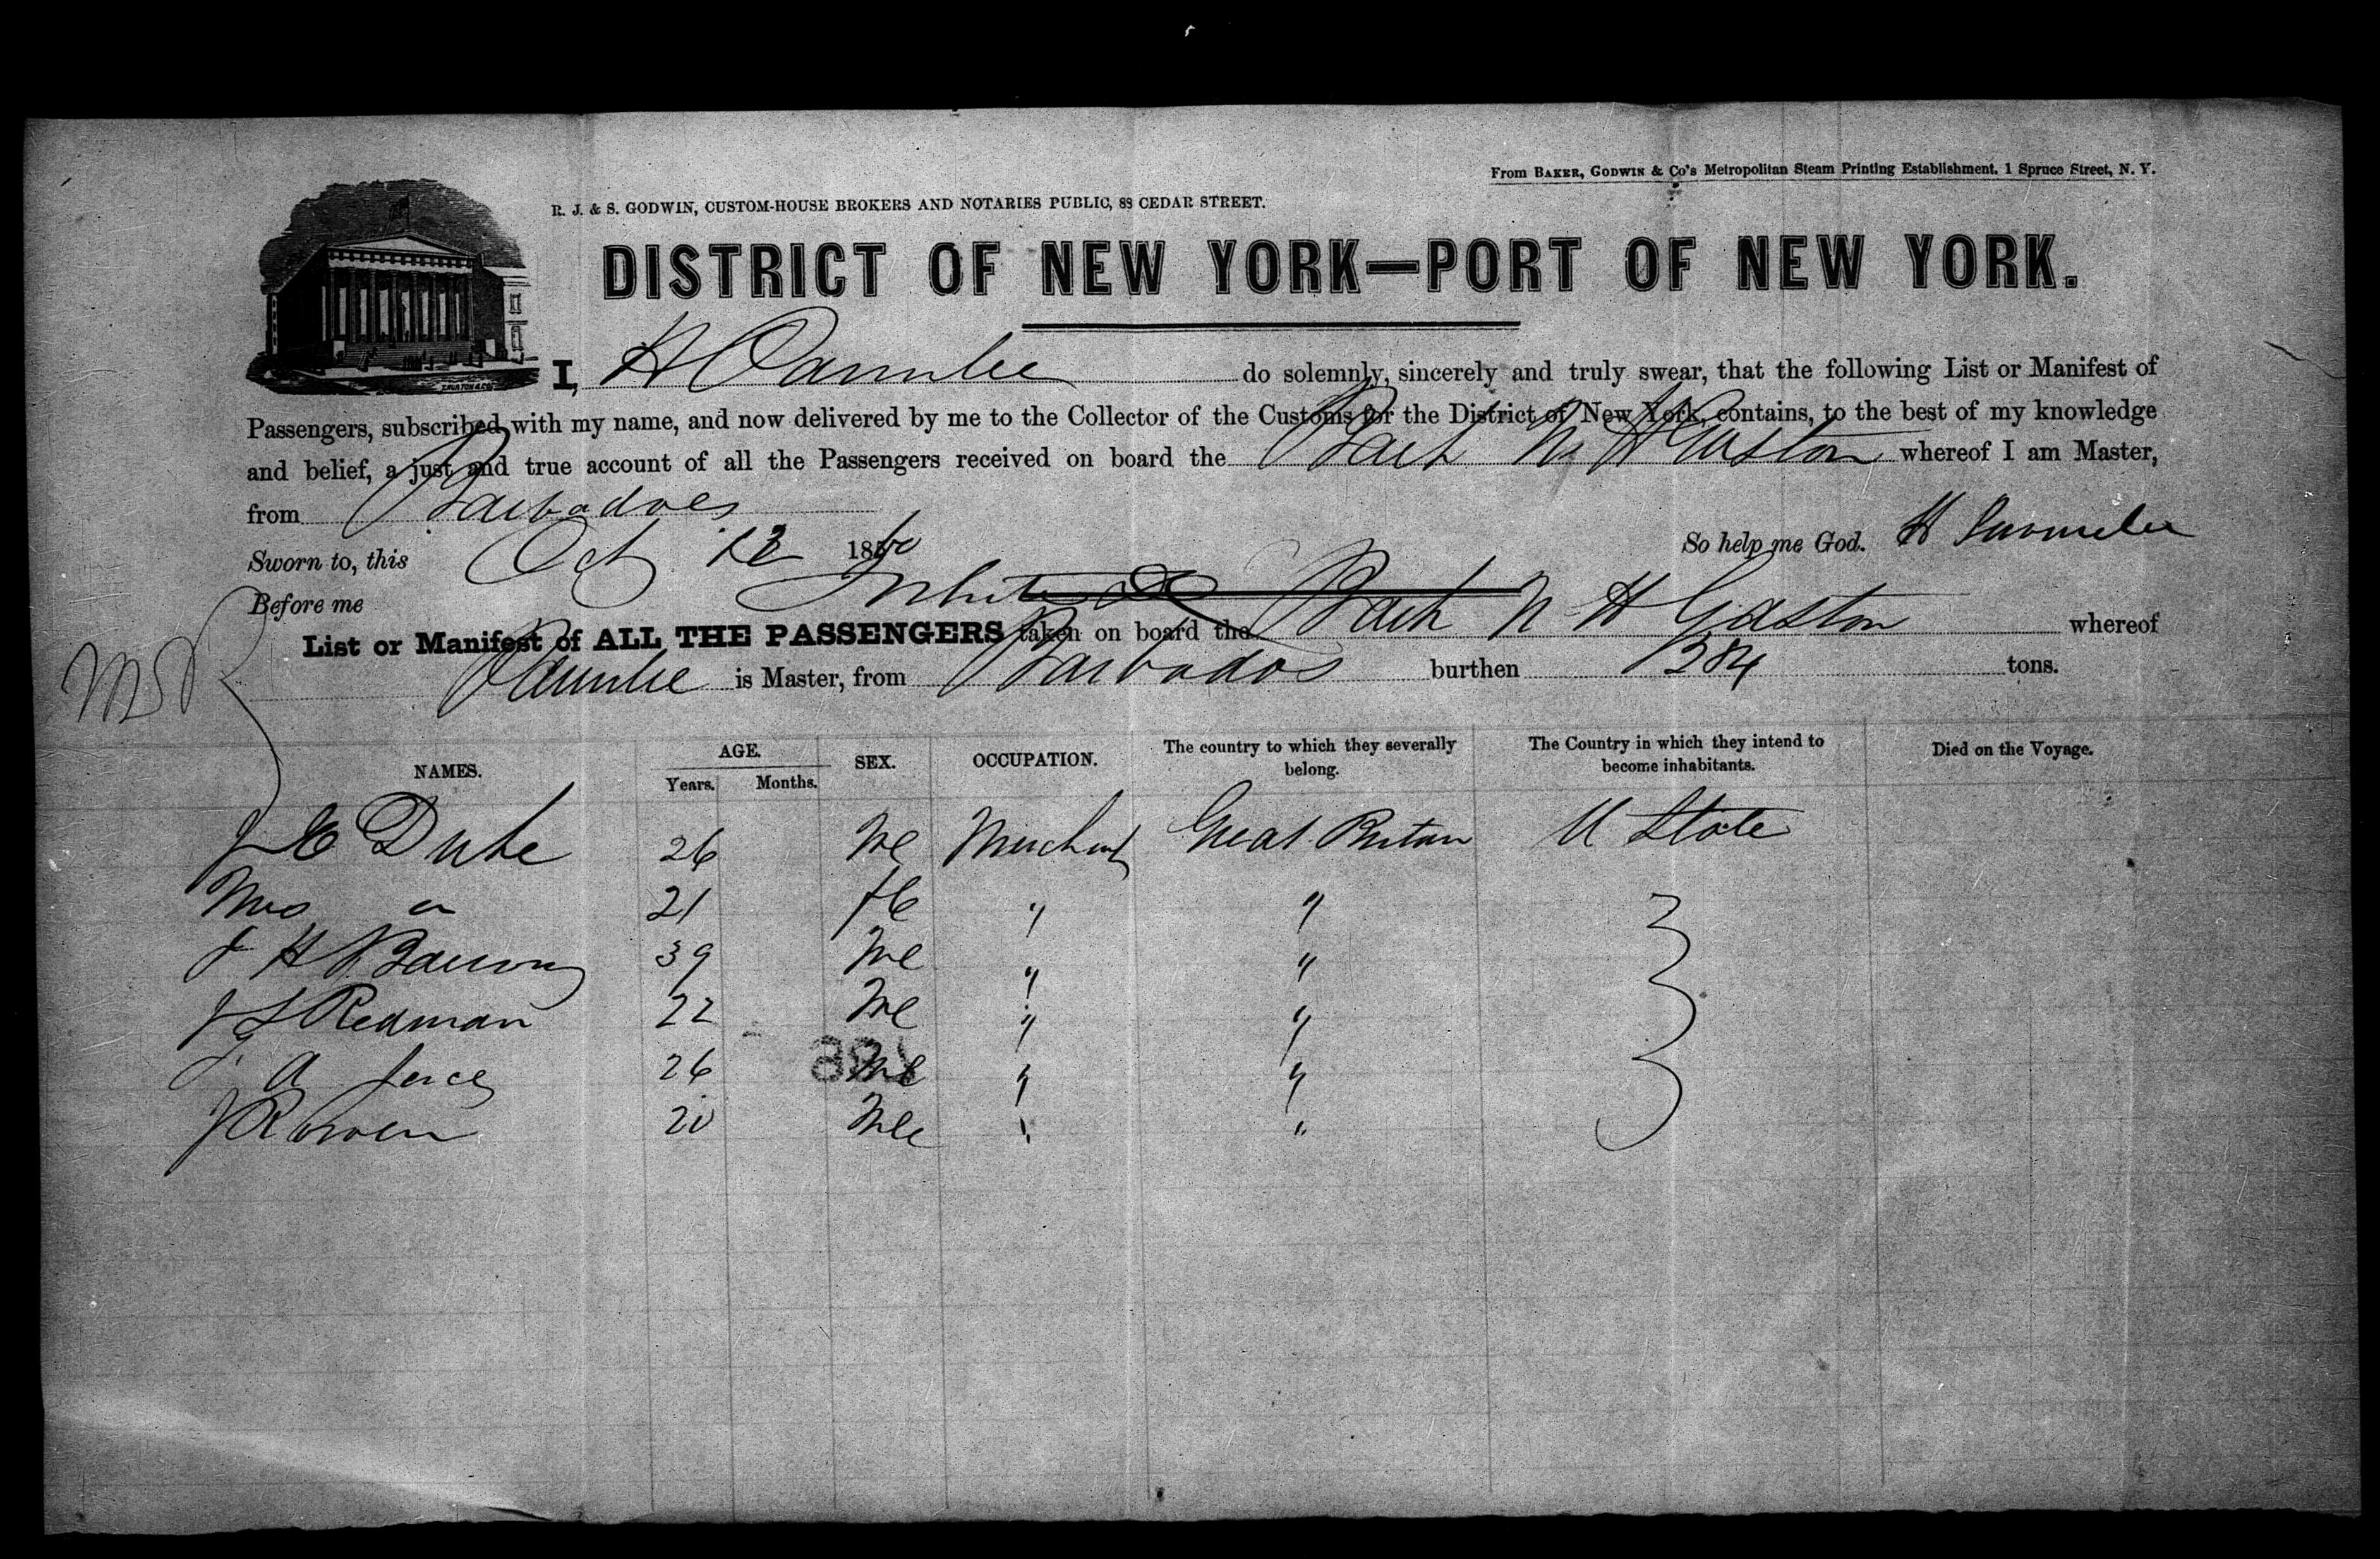 From BAKER, GODWIN & Co's Metropolitan Steam Printing Establishment, 1 Spruce Street, N. Y.
R. J. & S. GODWIN, CUSTOM-HOUSE BROKERS AND NOTARIES PUBLIC, 88 CEDAR STREET.
DISTRICT OF NEW YORK—PORT OF NEW YORK.
I, H do solemnly, sincerely and truly swear, that the following List or Manifest of
Passengers, subscribed with my name, and now delivered by me to the Collector of the Customs for the District of New York, contains, to the best of my knowledge
and belief, a just and true account of all the Passengers received on board the Bark N H Gaston whereof I am Master,
from Barbadoes
So help me God. H
Sworn to, this Oct 12 1860
Before me
List or Manifest of ALL THE PASSENGERS taken on board the Bark N H Gaston whereof
is Master, from Barbados burthen 384 tons.
NAMES. AGE. Years. Months. SEX. OCCUPATION. The country to which they severally belong. The Country in which they intend to become inhabitants. Died on the Voyage.
J E Duke 26 Me Merchant Great Britain U State
Mrs " 21 fe " "
J H 39 Me " "
J S Redman 22 Me " "
J. A 26 Me " "
J R 20 Me " "